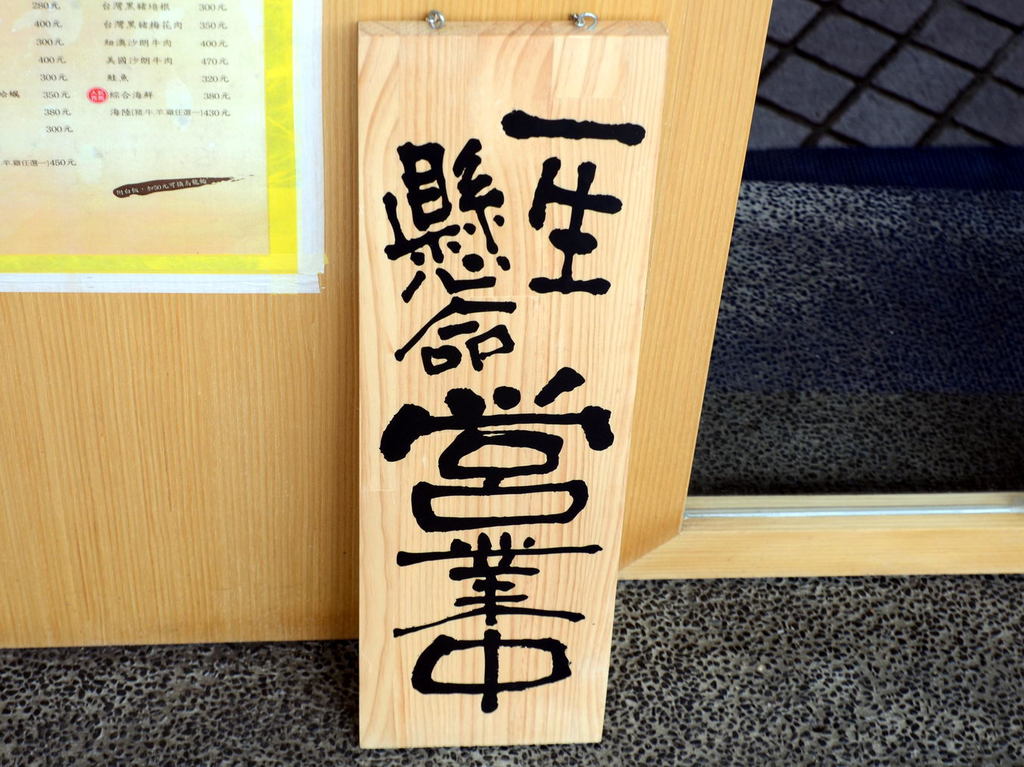 280元 台灣黑豬培根 300元
400元 台灣黑豬梅花肉 350元
300元 紐澳沙朗牛肉 400元
400元 美國沙朗牛肉 470元
300元 鮭魚 320元
350元 綜合海鮮 380元
380元 海陸(豬牛羊雞任選一)430元
300元
羊雞任選一)450元
附白飯,加50元可換烏龍麵
一生
懸命
営業中